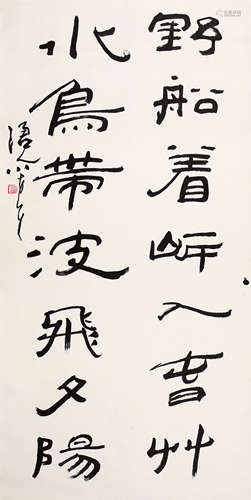 野船着岍入春艸
水鳥帶波飛夕陽